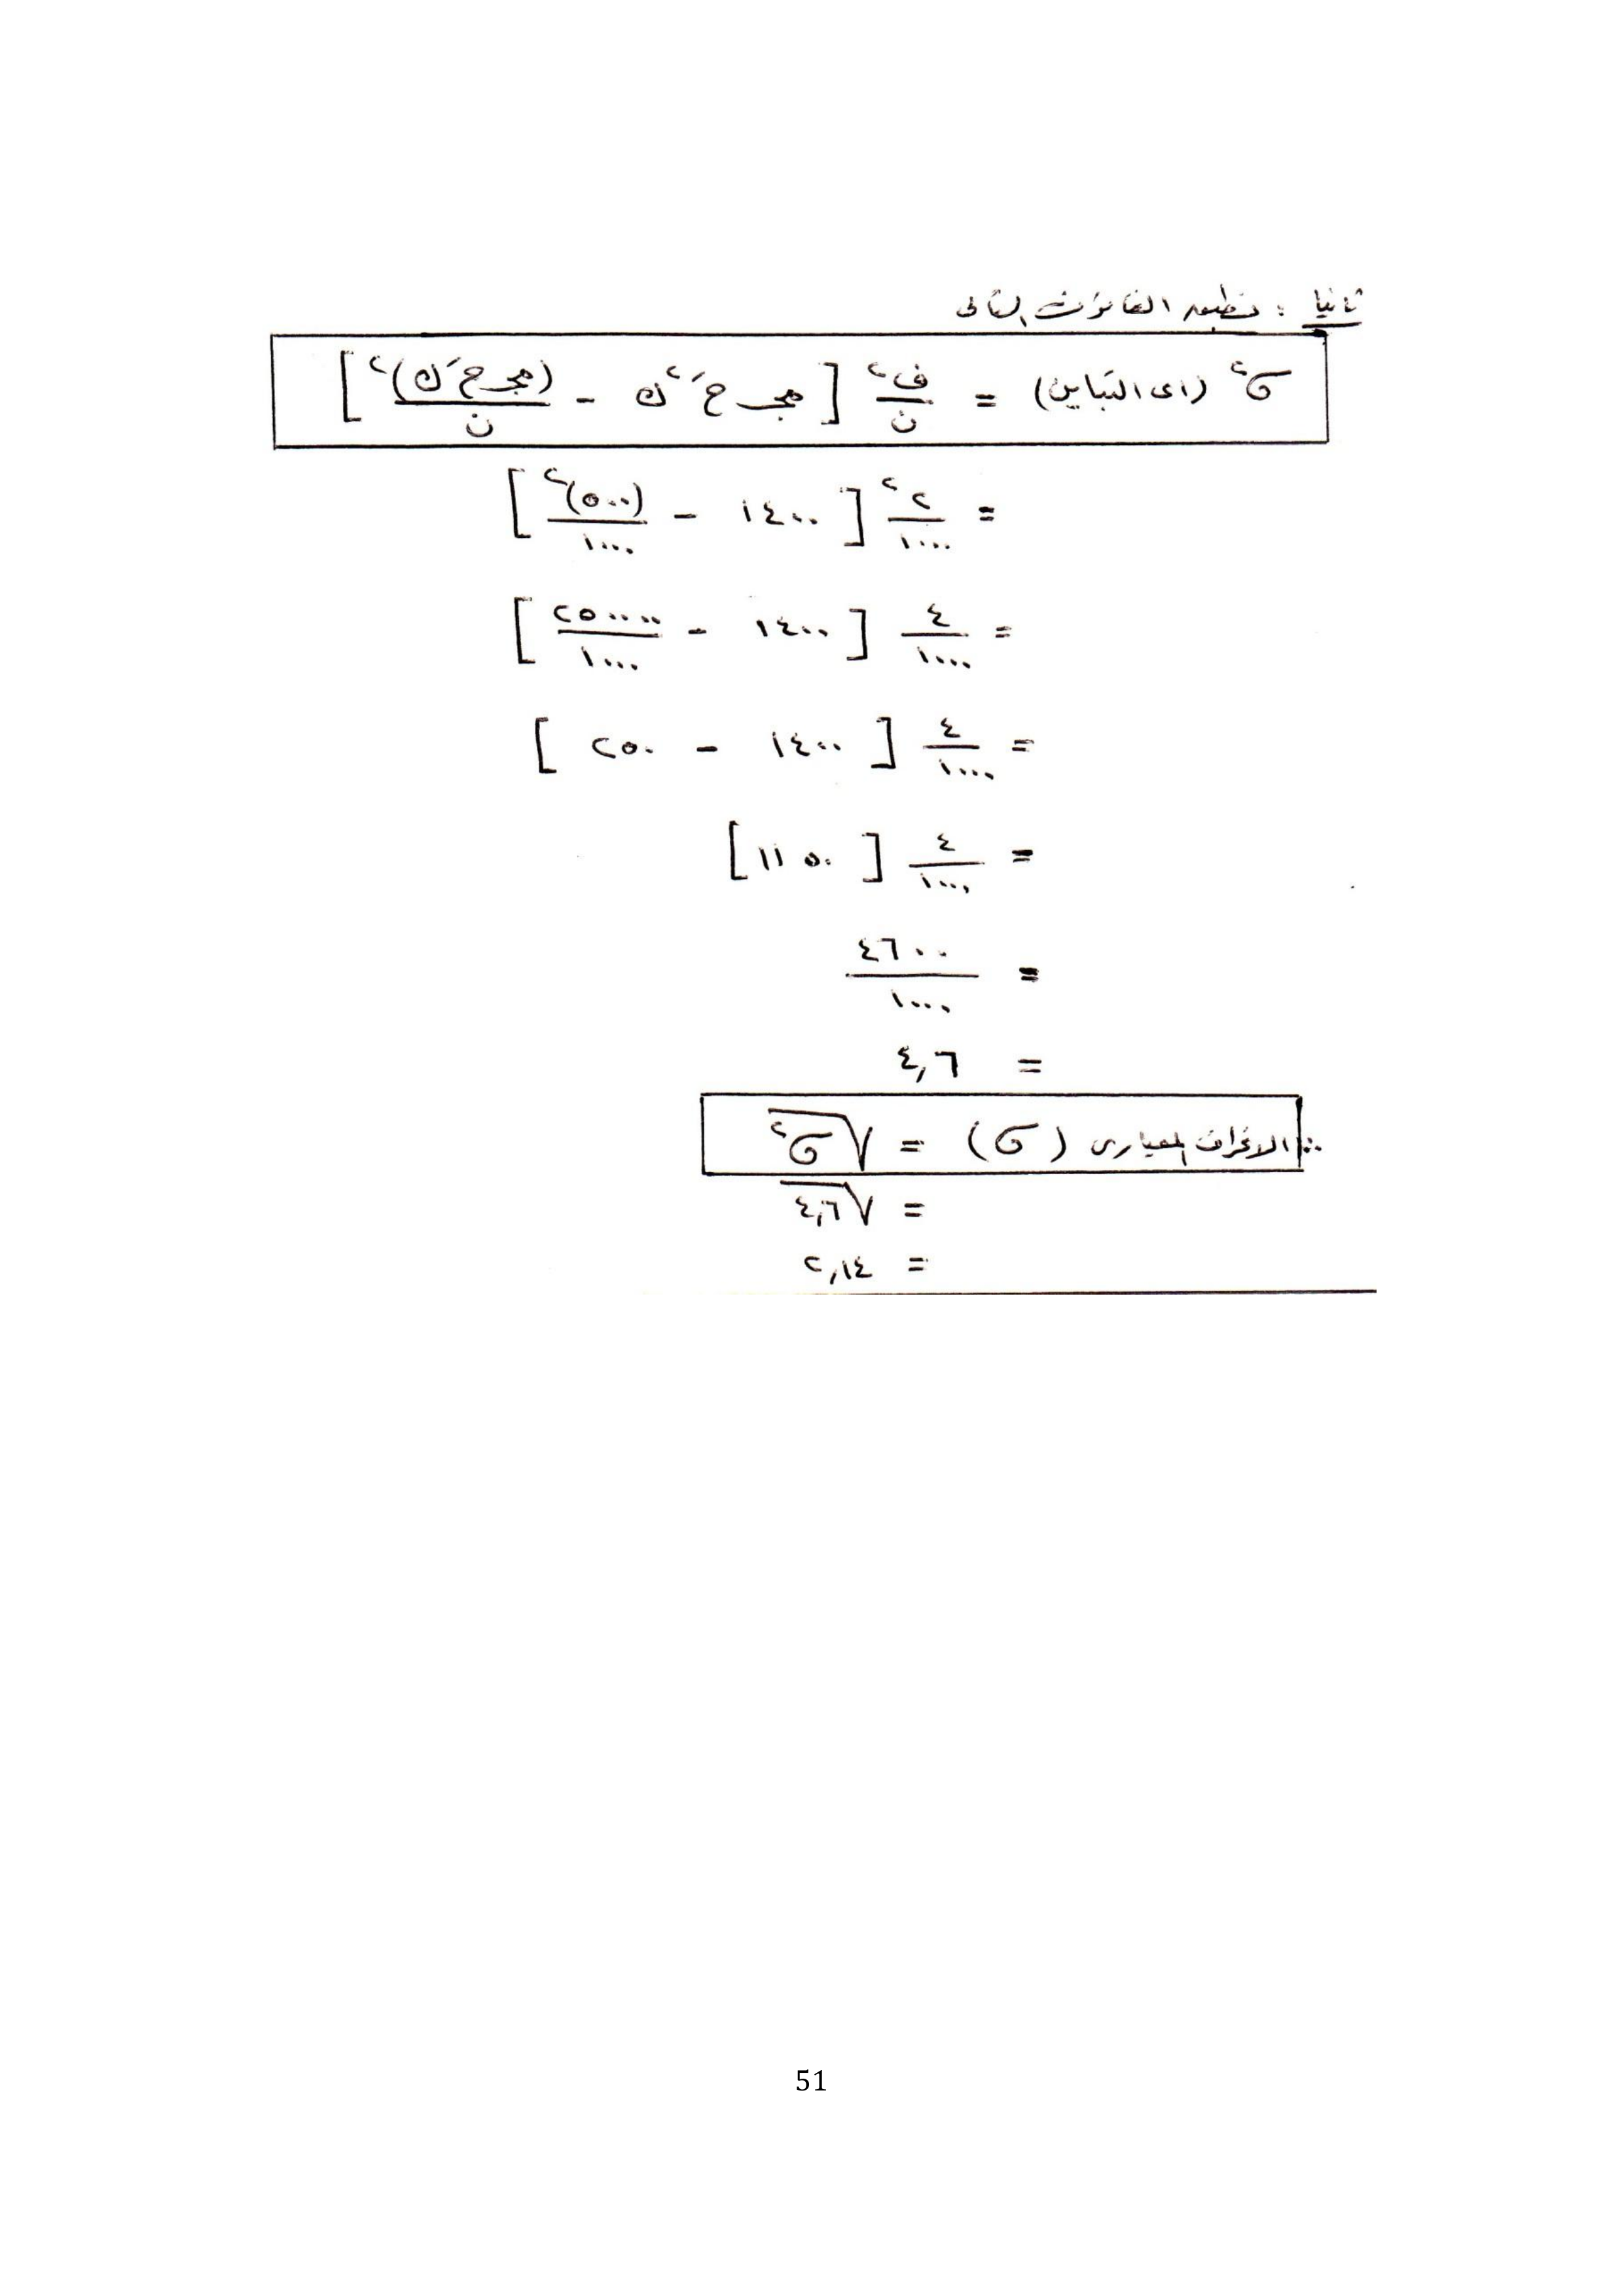 ثانيا : نطبق القانون التالى
σ٢ (اى التباين) = ف٢/ن [ مجـ حَ٢ ك - (مجـ حَ ك)٢/ن ]
= ٢٢/١٠٠٠ [ ١٤٠٠ - (٥٠٠)٢/١٠٠٠ ]
= ٤/١٠٠٠ [ ١٤٠٠ - ٢٥٠٠٠٠/١٠٠٠ ]
= ٤/١٠٠٠ [ ١٤٠٠ - ٢٥٠ ]
= ٤/١٠٠٠ [ ١١٥٠ ]
= ٤٦٠٠/١٠٠٠
= ٤,٦
∴ الانحراف المعيارى (σ) = √σ٢
= √٤,٦
= ٢,١٤
51